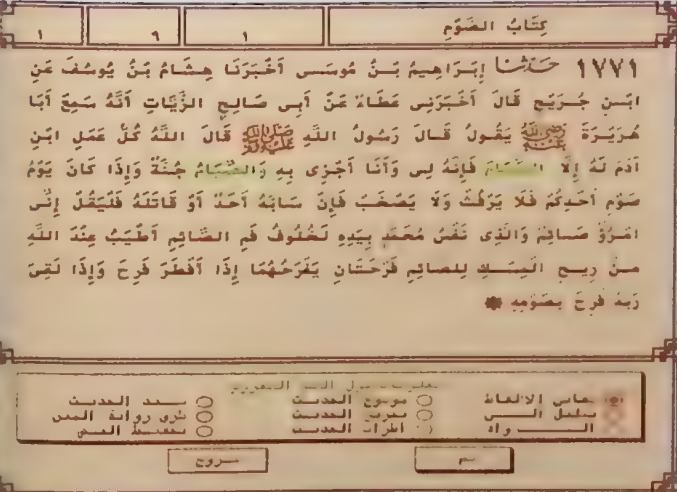 كِتَابُ الصَّوْمِ
١
٩
١
١٧٧١ حَدَّثَنَا إِبْرَاهِيمُ بْنُ مُوسَى أَخْبَرَنَا هِشَامُ بْنُ يُوسُفَ عَنِ
ابْنِ جُرَيْجٍ قَالَ أَخْبَرَنِي عَطَاءٌ عَنْ أَبِي صَالِحٍ الزَّيَّاتِ أَنَّهُ سَمِعَ أَبَا
هُرَيْرَةَ رَضِيَ اللَّهُ عَنْهُ يَقُولُ قَالَ رَسُولُ اللَّهِ صَلَّى اللَّهُ عَلَيْهِ وَسَلَّمَ قَالَ اللَّهُ كُلُّ عَمَلِ ابْنِ
آدَمَ لَهُ إِلَّا الصِّيَامَ فَإِنَّهُ لِي وَأَنَا أَجْزِي بِهِ وَالصِّيَامُ جُنَّةٌ وَإِذَا كَانَ يَوْمُ
صَوْمِ أَحَدِكُمْ فَلَا يَرْفُثْ وَلَا يَصْخَبْ فَإِنْ سَابَّهُ أَحَدٌ أَوْ قَاتَلَهُ فَلْيَقُلْ إِنِّي
امْرُؤٌ صَائِمٌ وَالَّذِي نَفْسُ مُحَمَّدٍ بِيَدِهِ لَخُلُوفُ فَمِ الصَّائِمِ أَطْيَبُ عِنْدَ اللَّهِ
مِنْ رِيحِ الْمِسْكِ لِلصَّائِمِ فَرْحَتَانِ يَفْرَحُهُمَا إِذَا أَفْطَرَ فَرِحَ وَإِذَا لَقِيَ
رَبَّهُ فَرِحَ بِصَوْمِهِ
معاني الالفاظ
موضوع الحديث
سند الحديث
تخريج الحديث
طرق رواية المتن
أطراف الحديث
خروج